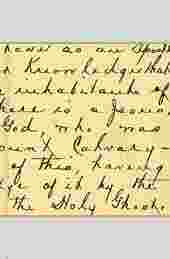 have as an
n Knowledge that
inhabitants of
there is a Jesus
God, who was
ount Calvary-
of this, having
of it by the
the Holy Ghost.